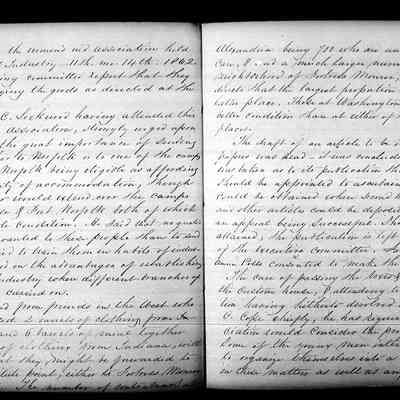 the womens aid association held
Industry 11th mo. 14th 1862
ing committee report that they
ging the goods as directed at the
C. Jenkins having attended this
Association, strongly urged upon
the great importance of sending
to Norfolk or to one of the camps
Norfolk being eligible as affording
of accommodation, though
should extend over the camps
& Fort Norfolk both of which
Condition. He said that agents
wanted to these people than to send
to train them in habits of indus
on the advantages of establishing
industry where different branches of
carried on.
from friends in the West who
2 barrels of clothing from In
barrels of mind together
of clothing from Indiana, with
that they might be forwarded to
place, either to Fortress Monroe
The number of contrabands at
Alexandria being 700 who are in
care, & and a much larger num
neighborhood of Fortress Monroe,
directs that the largest proportion
latter place. Those at Washington
better condition than at either of
places.
The draft of an article to be
papers was read. it was concluded
was taken as to its publication th
should be appointed to ascertain
could be obtained where second h
and other articles could be deposited
an appeal being successful. Thos
allowed, the publication is left
of the Executive Committee.
consented to make the
The care of passing the boxes
the Custom house, & attending to
tion having hitherto devolved
G. Cope chiefly, he has reques
ciation would consider the pro
some of the young men inter
to organize themselves into a
in these matters as well as any